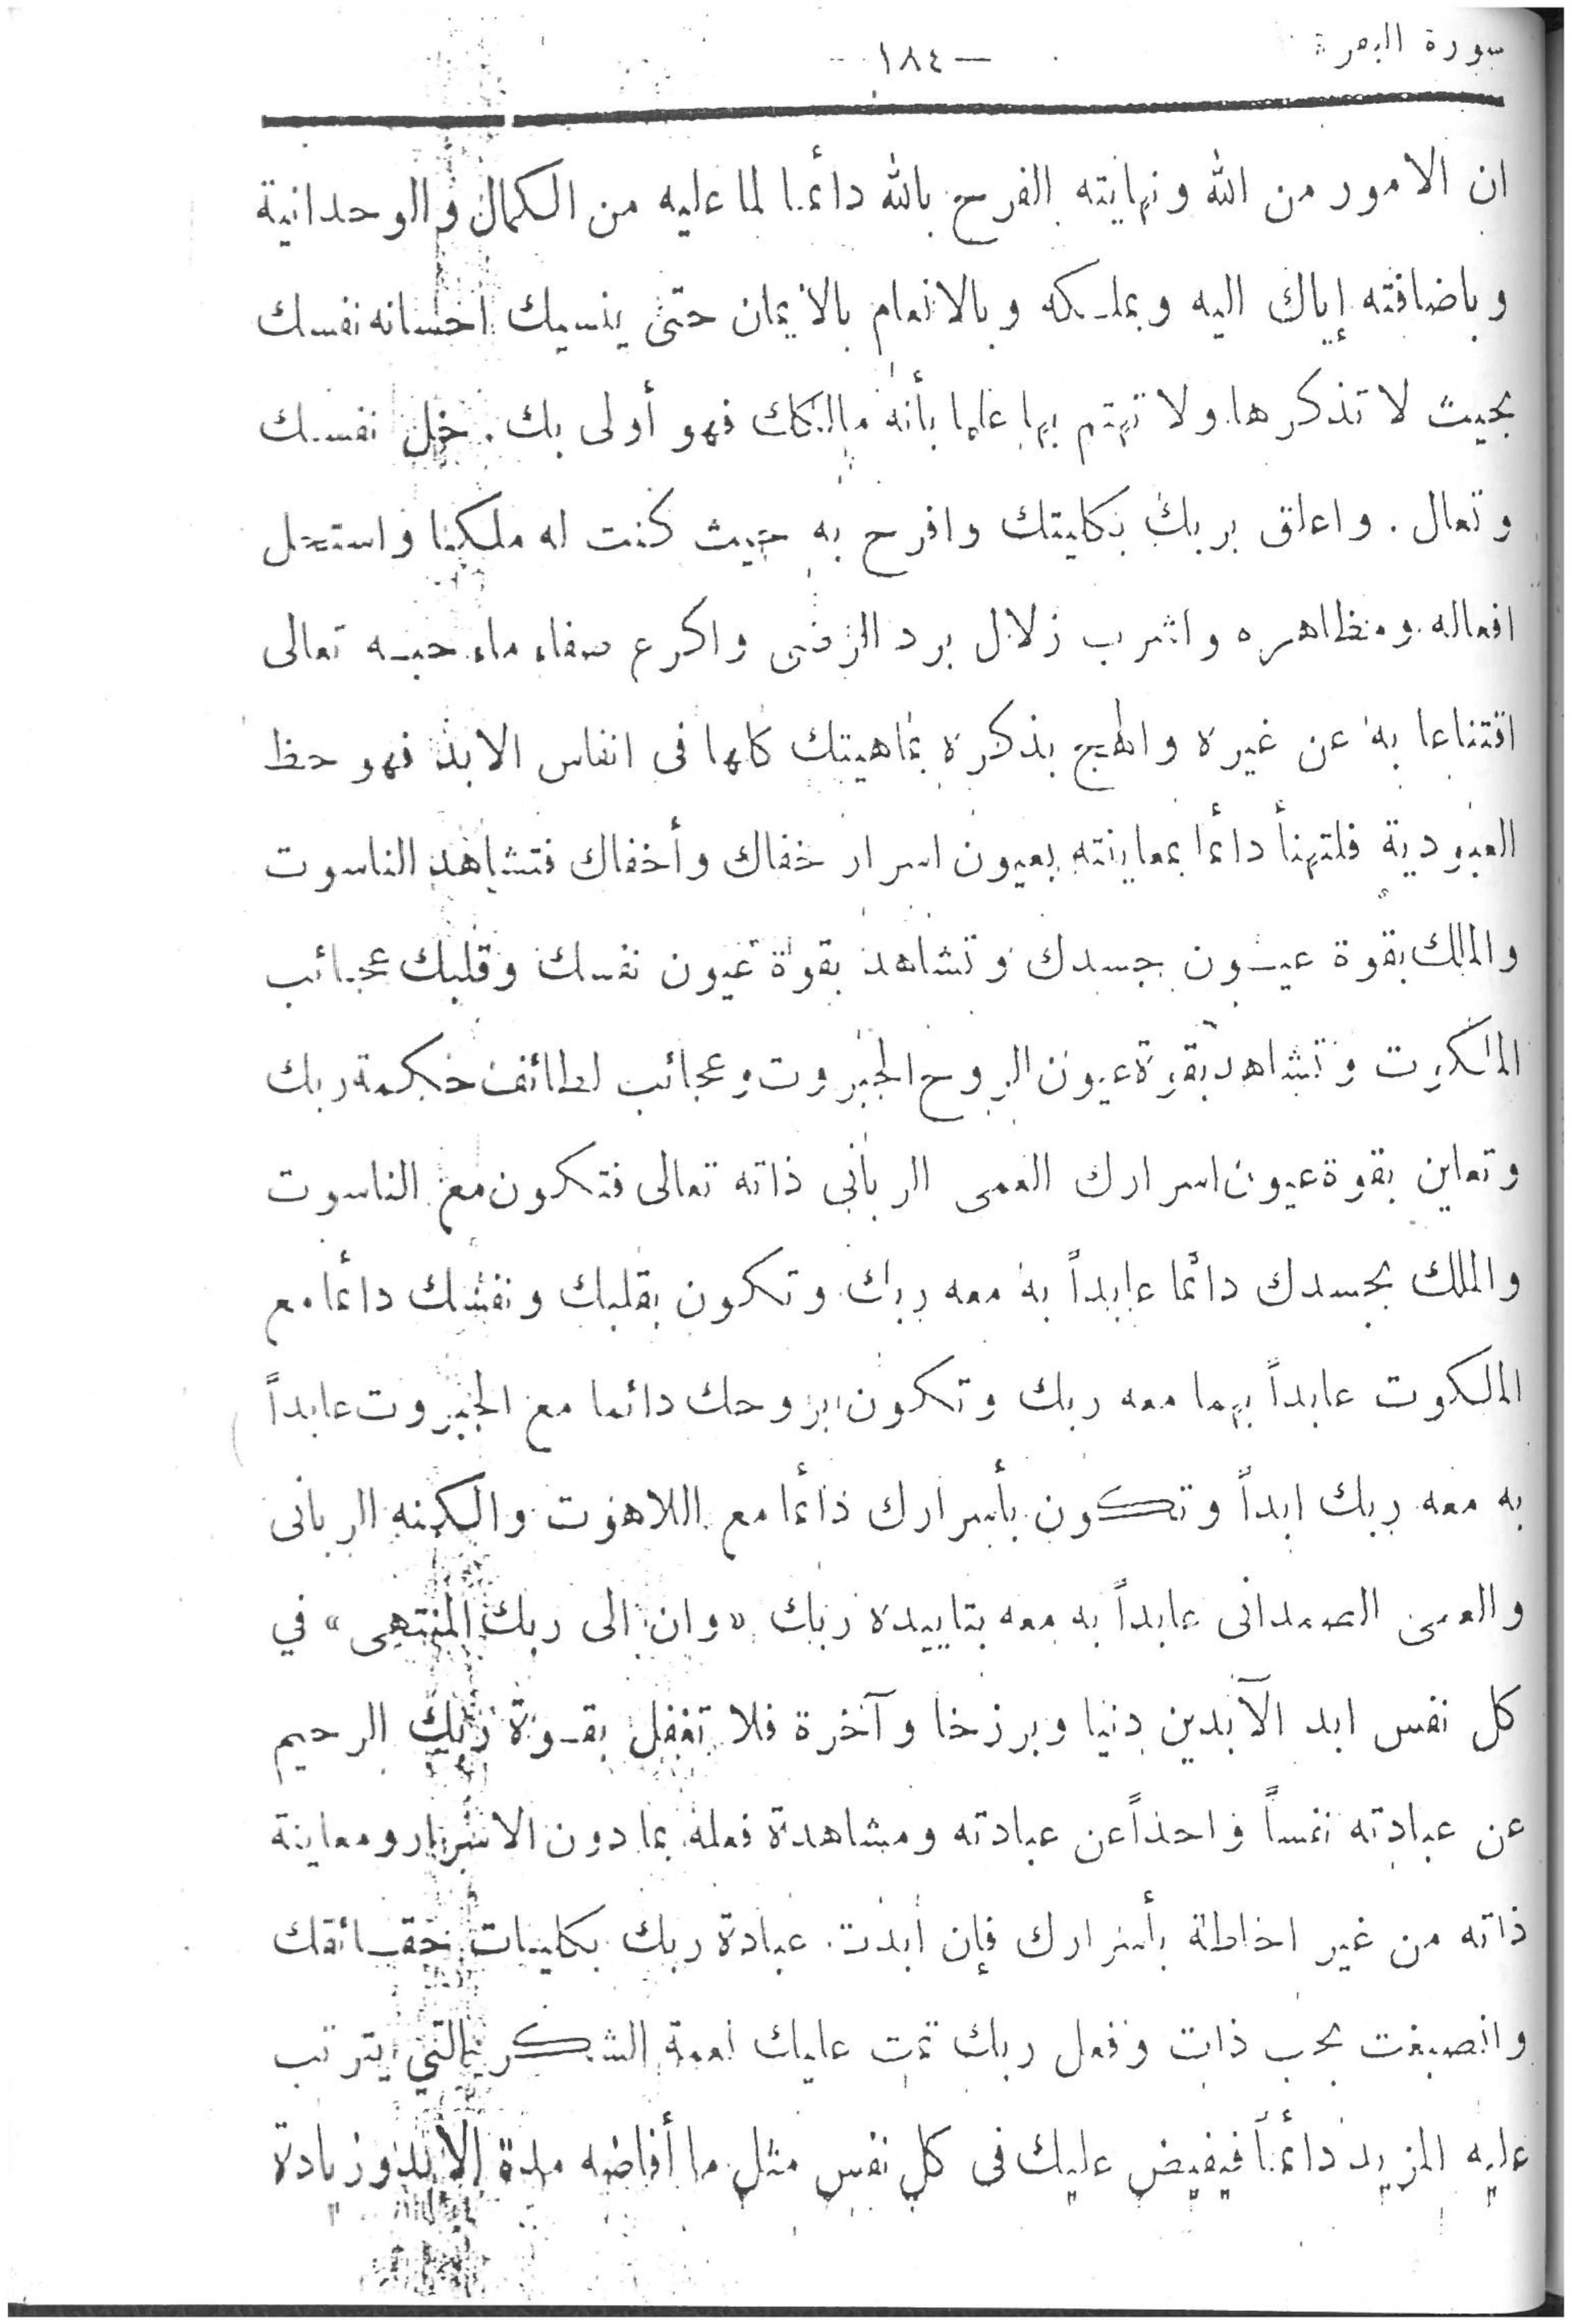 سورة البقرة
— ١٨٤ —
ان الامور من الله ونهايته الفرح بالله دائما لما عليه من الكمال والوحدانية
وباضافته إياك اليه وبملكه وبالانعام بالايمان حتى ينسيك احسانه نفسك
بحيث لا تذكرها ولا تهتم بها علما بأنه مالكك فهو أولى بك . خل نفسك
وتعال . واعلق بربك بكليتك وافرح به حيث كنت له ملكا واستحل
افعاله ومظاهره واشرب زلال برد الرضى واكرع صفاء ماء حبه تعالى
اقتناعا به عن غيره والهج بذكره بماهيتك كلها فى انفاس الابد فهو حظ
العبودية فلتهنأ دائما بمعاينته بعيون اسرار خفاك وأخفاك فتشاهد الناسوت
والملك بقوة عيون جسدك وتشاهد بقوة عيون نفسك وقلبك عجائب
الملكوت وتشاهد بقوة عيون الروح الجبروت وعجائب لطائف حكمة ربك
وتعاين بقوة عيون اسرارك العمى الربانى ذاته تعالى فتكون مع الناسوت
والملك بجسدك دائما عابداً به معه ربك وتكون بقلبك ونفسك دائما مع
الملكوت عابداً بهما معه ربك وتكون بروحك دائما مع الجبروت عابداً
به معه ربك ابداً وتكون بأسرارك دائما مع اللاهوت والكنه الربانى
والعمى الصمدانى عابداً به معه بتاييده ربك «وان الى ربك المنتهى» في
كل نفس ابد الآبدين دنيا وبرزخا وآخرة فلا تغفل بقوة ربك الرحيم
عن عبادته نفساً واحداً عن عبادته ومشاهدة فعله بما دون الاسرار ومعاينة
ذاته من غير احاطة بأسرارك فإن ابدت عبادة ربك بكليات حقائقك
وانصبغت بحب ذات وفعل ربك تمت عليك نعمة الشكر بالتي يترتب
عليه المزيد دائماً فيفيض عليك فى كل نفس مثل ما أفاضه مدة الابد وزيادة